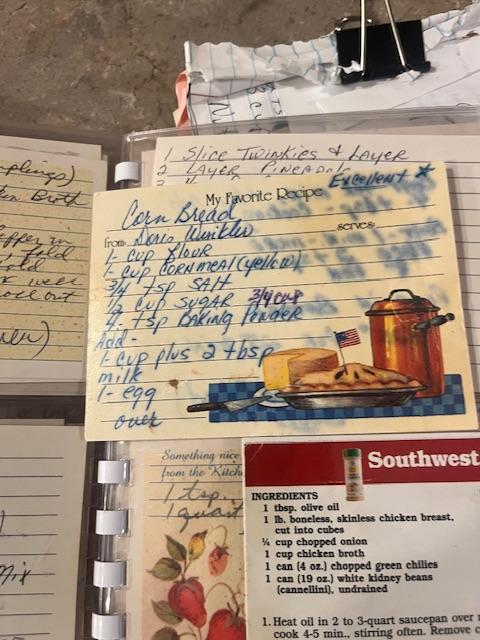 1 Slice Twinkies & Layer
2 Layer
My Favorite Recipe
Excellent *
Corn Bread
from Doris Winkler
serves:
1- cup flour
1- cup cornmeal (yellow)
3/4 tsp salt
1/2 cup sugar 3/4 cup
4- tsp Baking Powder
Add -
1-cup plus 2 tbsp
milk
1- egg
over
plings)
Broth
old
out
Something nice
from the Kitch
1 tsp.
1 quart
Mix
Southwest
INGREDIENTS
1 tbsp. olive oil
1 lb. boneless, skinless chicken breast,
cut into cubes
¼ cup chopped onion
1 cup chicken broth
1 can (4 oz.) chopped green chilies
1 can (19 oz.) white kidney beans
(cannellini), undrained
1. Heat oil in 2 to 3-quart saucepan over
cook 4-5 min, stirring often. Remove